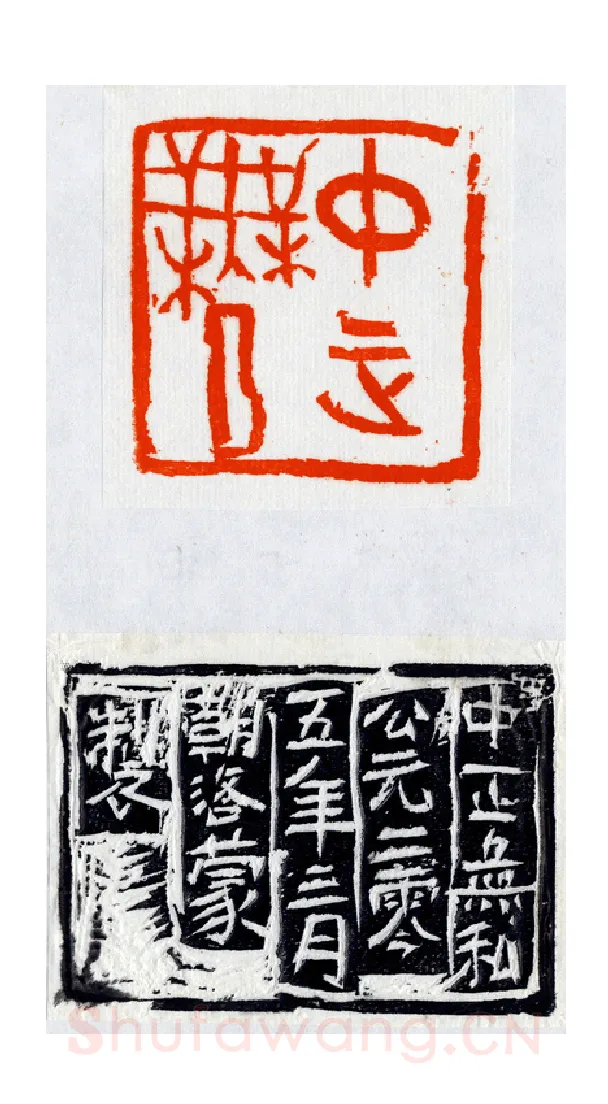 中正
無私
中正無私
公元二零
五年三月
朝洛蒙
製
Shufawang.CN